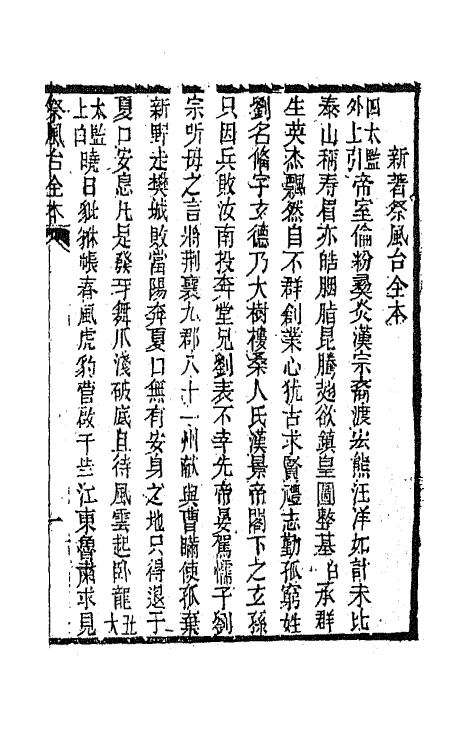 新著祭風台全本
四太監外上引帝室倫粉爕炎漢宗裔渡宏熊汪洋如計未比
泰山稱寿眉亦皓胭脂昆騰趂欲鎮皇圖整基白承群
生英杰飄然自不群創業心犹古求賢禮志勤孤窮姓
劉名俻字玄德乃大樹樓桑人氏漢景帝閣下之玄孫
只因兵敗汝南投奔堂兄劉表不幸先帝晏駕懦子劉
宗听母之言將荆襄九郡八十一州献與曹瞞使孤棄
新野走樊城敗當陽奔夏口無有安身之地只得退于
夏口安息凡是發牙舞爪淺破底且待風雲起卧龍丑大
太監上白曉日貔貅帳春風虎豹营啟千岁江東魯肅求見
祭風台全本
一